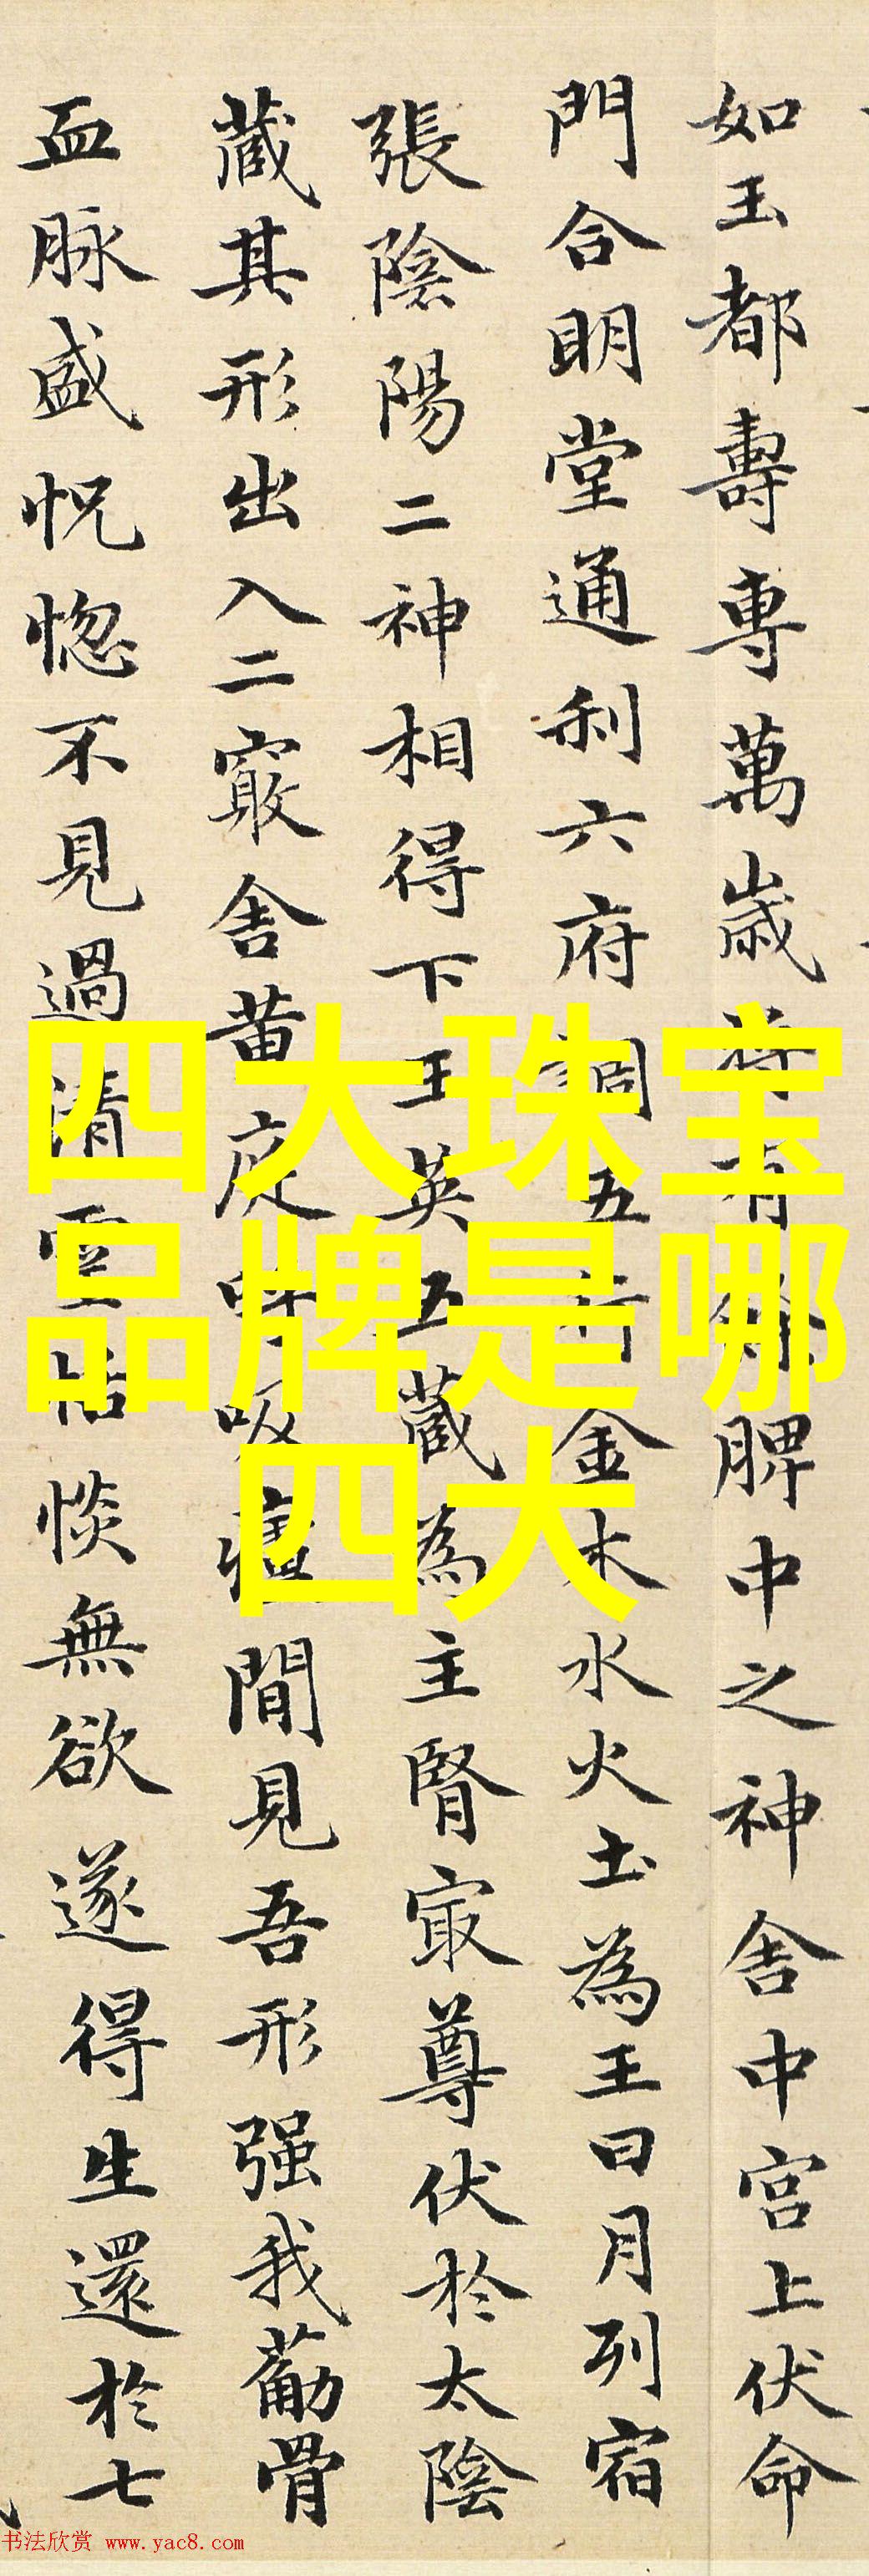 如玉都壽專萬歲將有餘脾中之神舍中宮上伏命
門合明堂通利六府調五行金木水火土為王日月列宿
張陰陽二神相得下玉英五藏為主腎最尊伏於太陰
藏其形出入二竅舍黃庭呼吸廬間見吾形强我筋骨
血脉盛怳惚不見過清靈恬惔無欲遂得生還於七
四大珠宝
品牌是哪
四大
书法欣赏 www.yac8.com